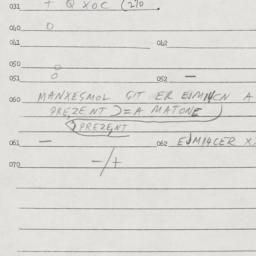 031 + Q XOC (270
040 O
041 042
050
051 052 —
060 MANXESMOL GIT ER EJMI4CN A
PREZENT) = A MATONE
PREZENT
061 — 062 EJMI4CER X
070 -/+